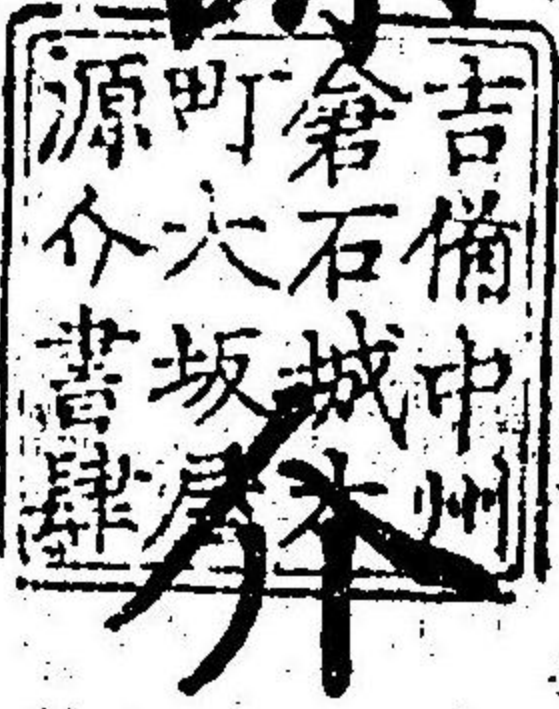 吉備中州
倉石城本
町大坂屋
源介書肆